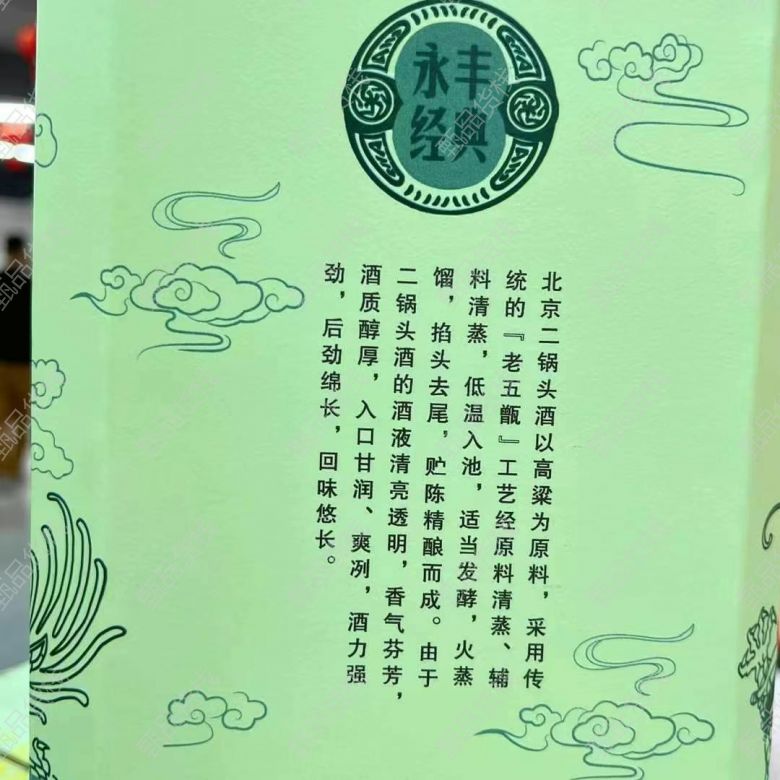 永丰
经典
北京二锅头酒以高粱为原料，采用传
统的『老五甑』工艺经原料清蒸、辅
料清蒸，低温入池，适当发酵，火蒸
馏，掐头去尾，贮陈精酿而成。由于
二锅头酒的酒液清亮透明，香气芬芳，
酒质醇厚，入口甘润、爽冽，酒力强
劲，后劲绵长，回味悠长。
甄品货栈